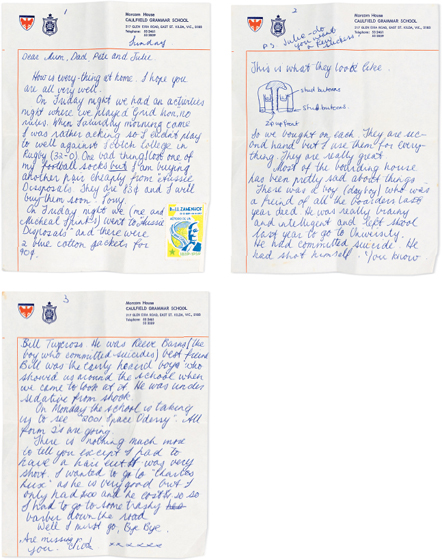 1
Morcom House
CAULFIELD GRAMMAR SCHOOL
217 GLEN EIRA ROAD, EAST ST. KILDA, VIC., 3183
Sunday
Dear Mum, Dad, Pete and Julie.
How is every-thing at home. I hope you
are all very well.
On Friday night we had an activities
night where we played Grid Iron, no
rules. When Saturday morning came
I was rather aching so I didn't play
to well against Scotch College in
Rugby (32-0). One bad thing I lost one of
my football socks but I'm buying
another pair cheaply from Aussie
Disposals. They are $3 and I will
buy them soon
On Friday night we (me and
Micheal) went to Aussie
Disposals and there were
2 blue cotton jackets for
90¢.
2
P.S. Julie - do
you want
a
This is what they look like.
stud buttons
stud buttons
zip up front
So we bought on each. They are sec-
ond hand but I use them for every-
thing. They are really great
Most of the boarding house
has been pretty sad about things
There was a boy (day boy) who was
a freind of all the boarders last
year died. He was really brainy
and intelligent and left school
last year to go to University.
He had committed suicide. He
had shot himself. You know
3
Morcom House
CAULFIELD GRAMMAR SCHOOL
217 GLEN EIRA ROAD, EAST ST. KILDA, VIC., 3183
Bill Twycross He was Reeve (the
boy who committed suicides) best freind
Bill was the curly haired boy who
showed us around the school when
we came to look at it. He was under
sedative from shock.
On Monday the school is taking
us to see "2001 Space Odessy". All
form 2's are going.
There is nothing much more
to tell you except I had to
have a hair cut. It was very
short. I wanted to go to "Charles
Lux" as he is very good but I
only had and he costs so so
I had to go to some trashy
barber down the road
Well I must go, Bye Bye.
Are missing
you.
xxxxxx